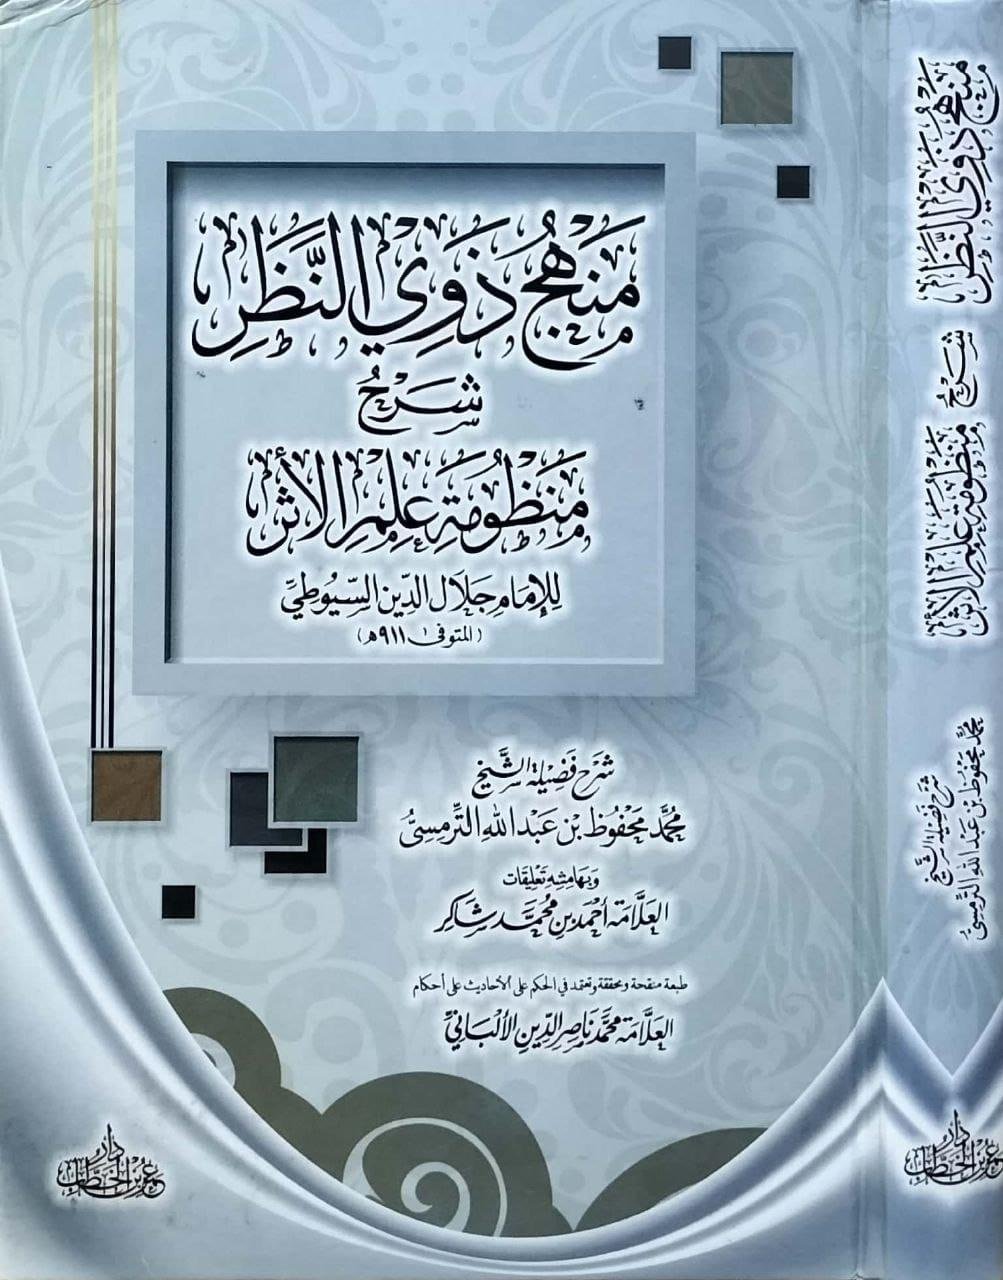 مَنْهَجُ ذَوِي النَّظَرِ
شَرْحُ
مَنْظُومَةِ عِلْمِ الأَثَرِ
لِلإِمَامِ جَلَالِ الدِّينِ السِّيُوطِيِّ
(المتوفى ٩١١هـ)
شَرْحُ فَضِيلَةِ الشَّيْخِ
مُحَمَّد مَحْفُوظ بْن عَبْدِ اللهِ التَّرْمِسِيُّ
وَبِهَامِشِهِ تَعْلِيقَات
العَلَّامَة أَحْمَد بن مُحَمَّد شَاكِر
طبعة منقحة ومحققة وتعتمد في الحكم على الأحاديث على أحكام
العَلَّامَة مُحَمَّد نَاصِر الدِّين الأَلْبَانِي
دَارُ
عُمَر بْن الخَطَّاب
مَنْهَجُ ذَوِي النَّظَرِ شَرْحُ مَنْظُومَةِ عِلْمِ الأَثَرِ
شَرْحُ فَضِيلَةِ الشَّيْخِ
مُحَمَّد مَحْفُوظ بْن عَبْدِ اللهِ التَّرْمِسِيُّ
دَارُ
عُمَر بْن الخَطَّاب